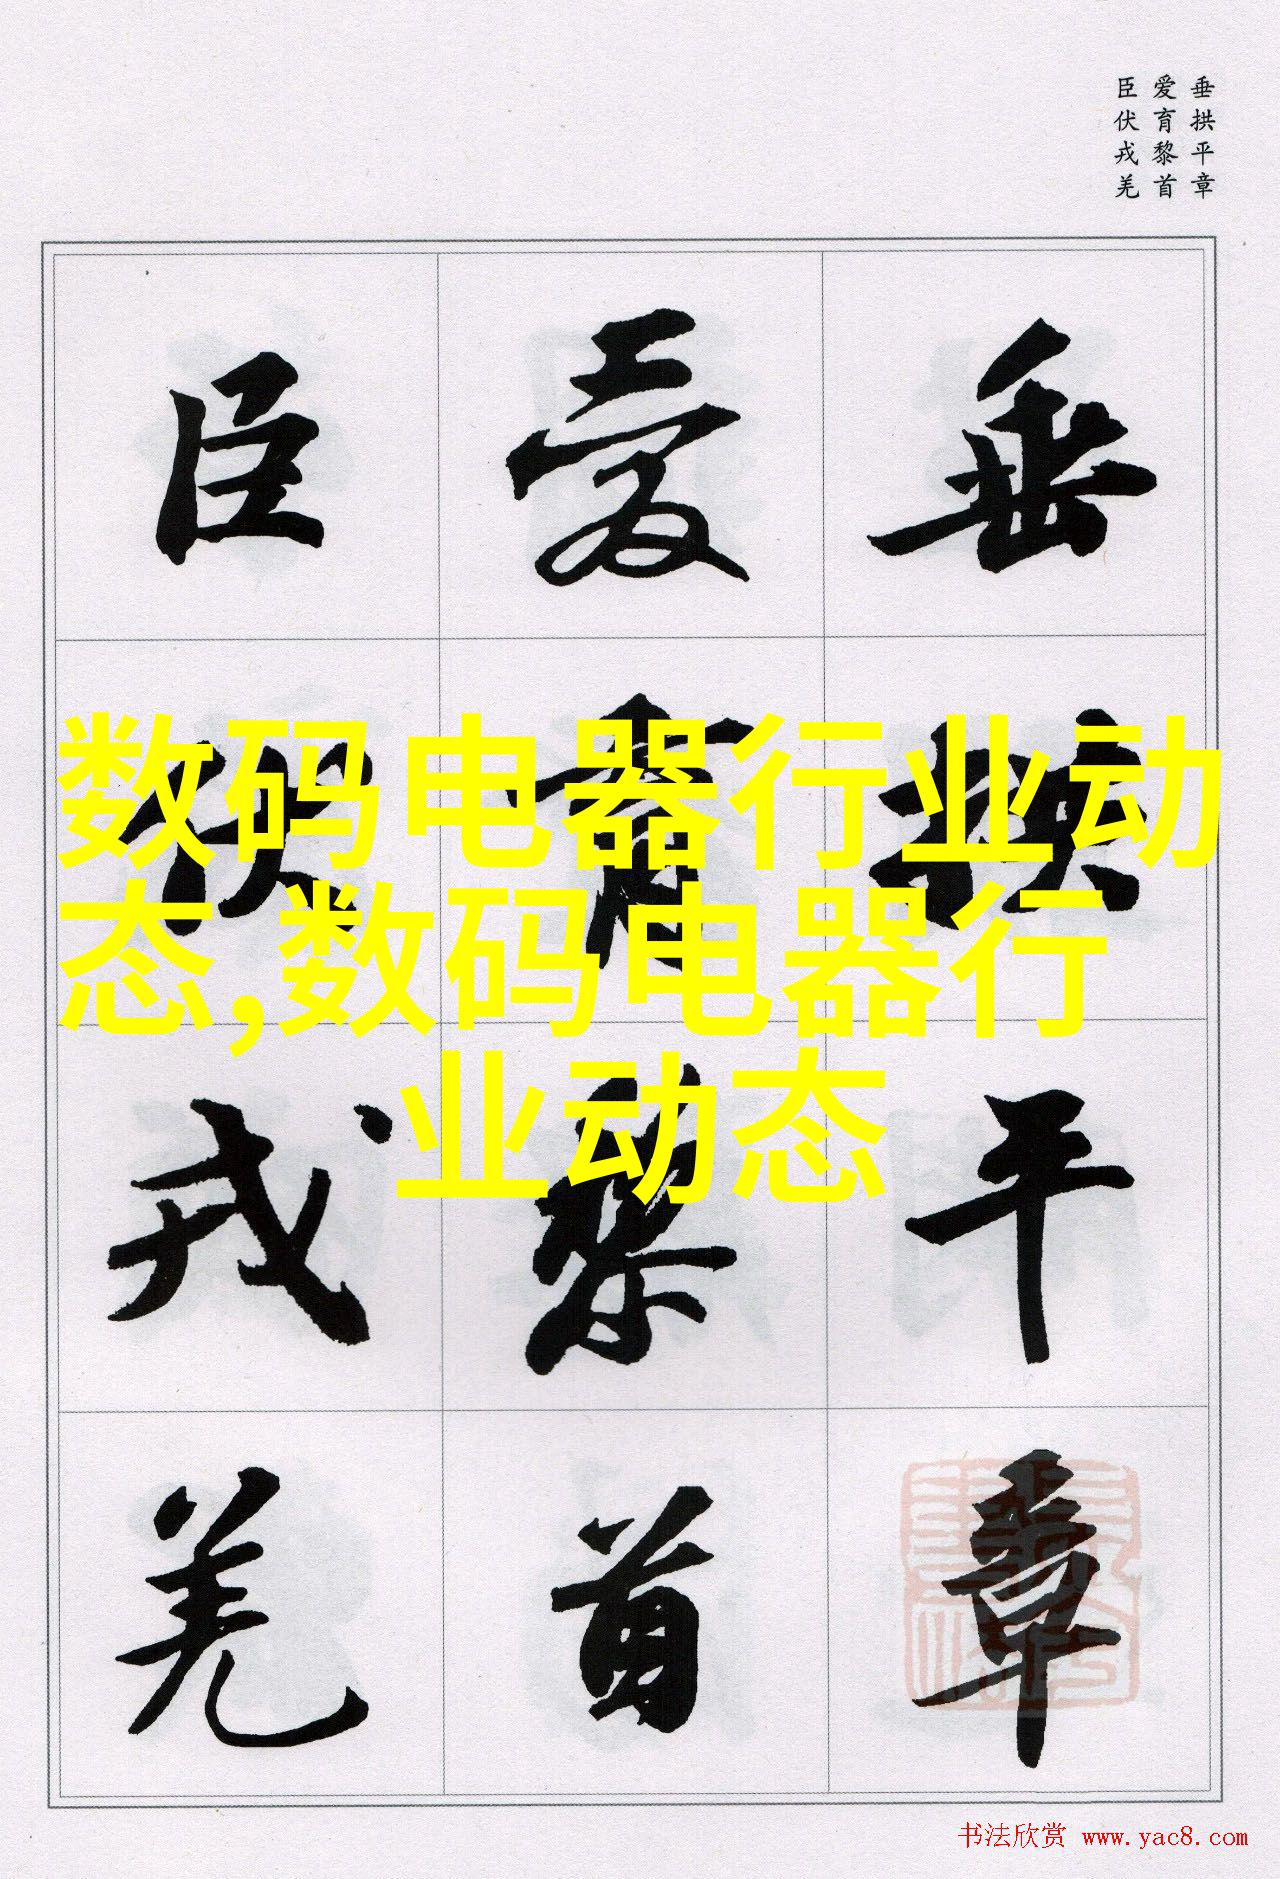 垂拱平章
爱育黎首
臣伏戎羌
垂拱平章
爱育黎首
臣伏戎羌
数码电器行业动
态,数码电器行
业动态
书法欣赏 www.yac8.com